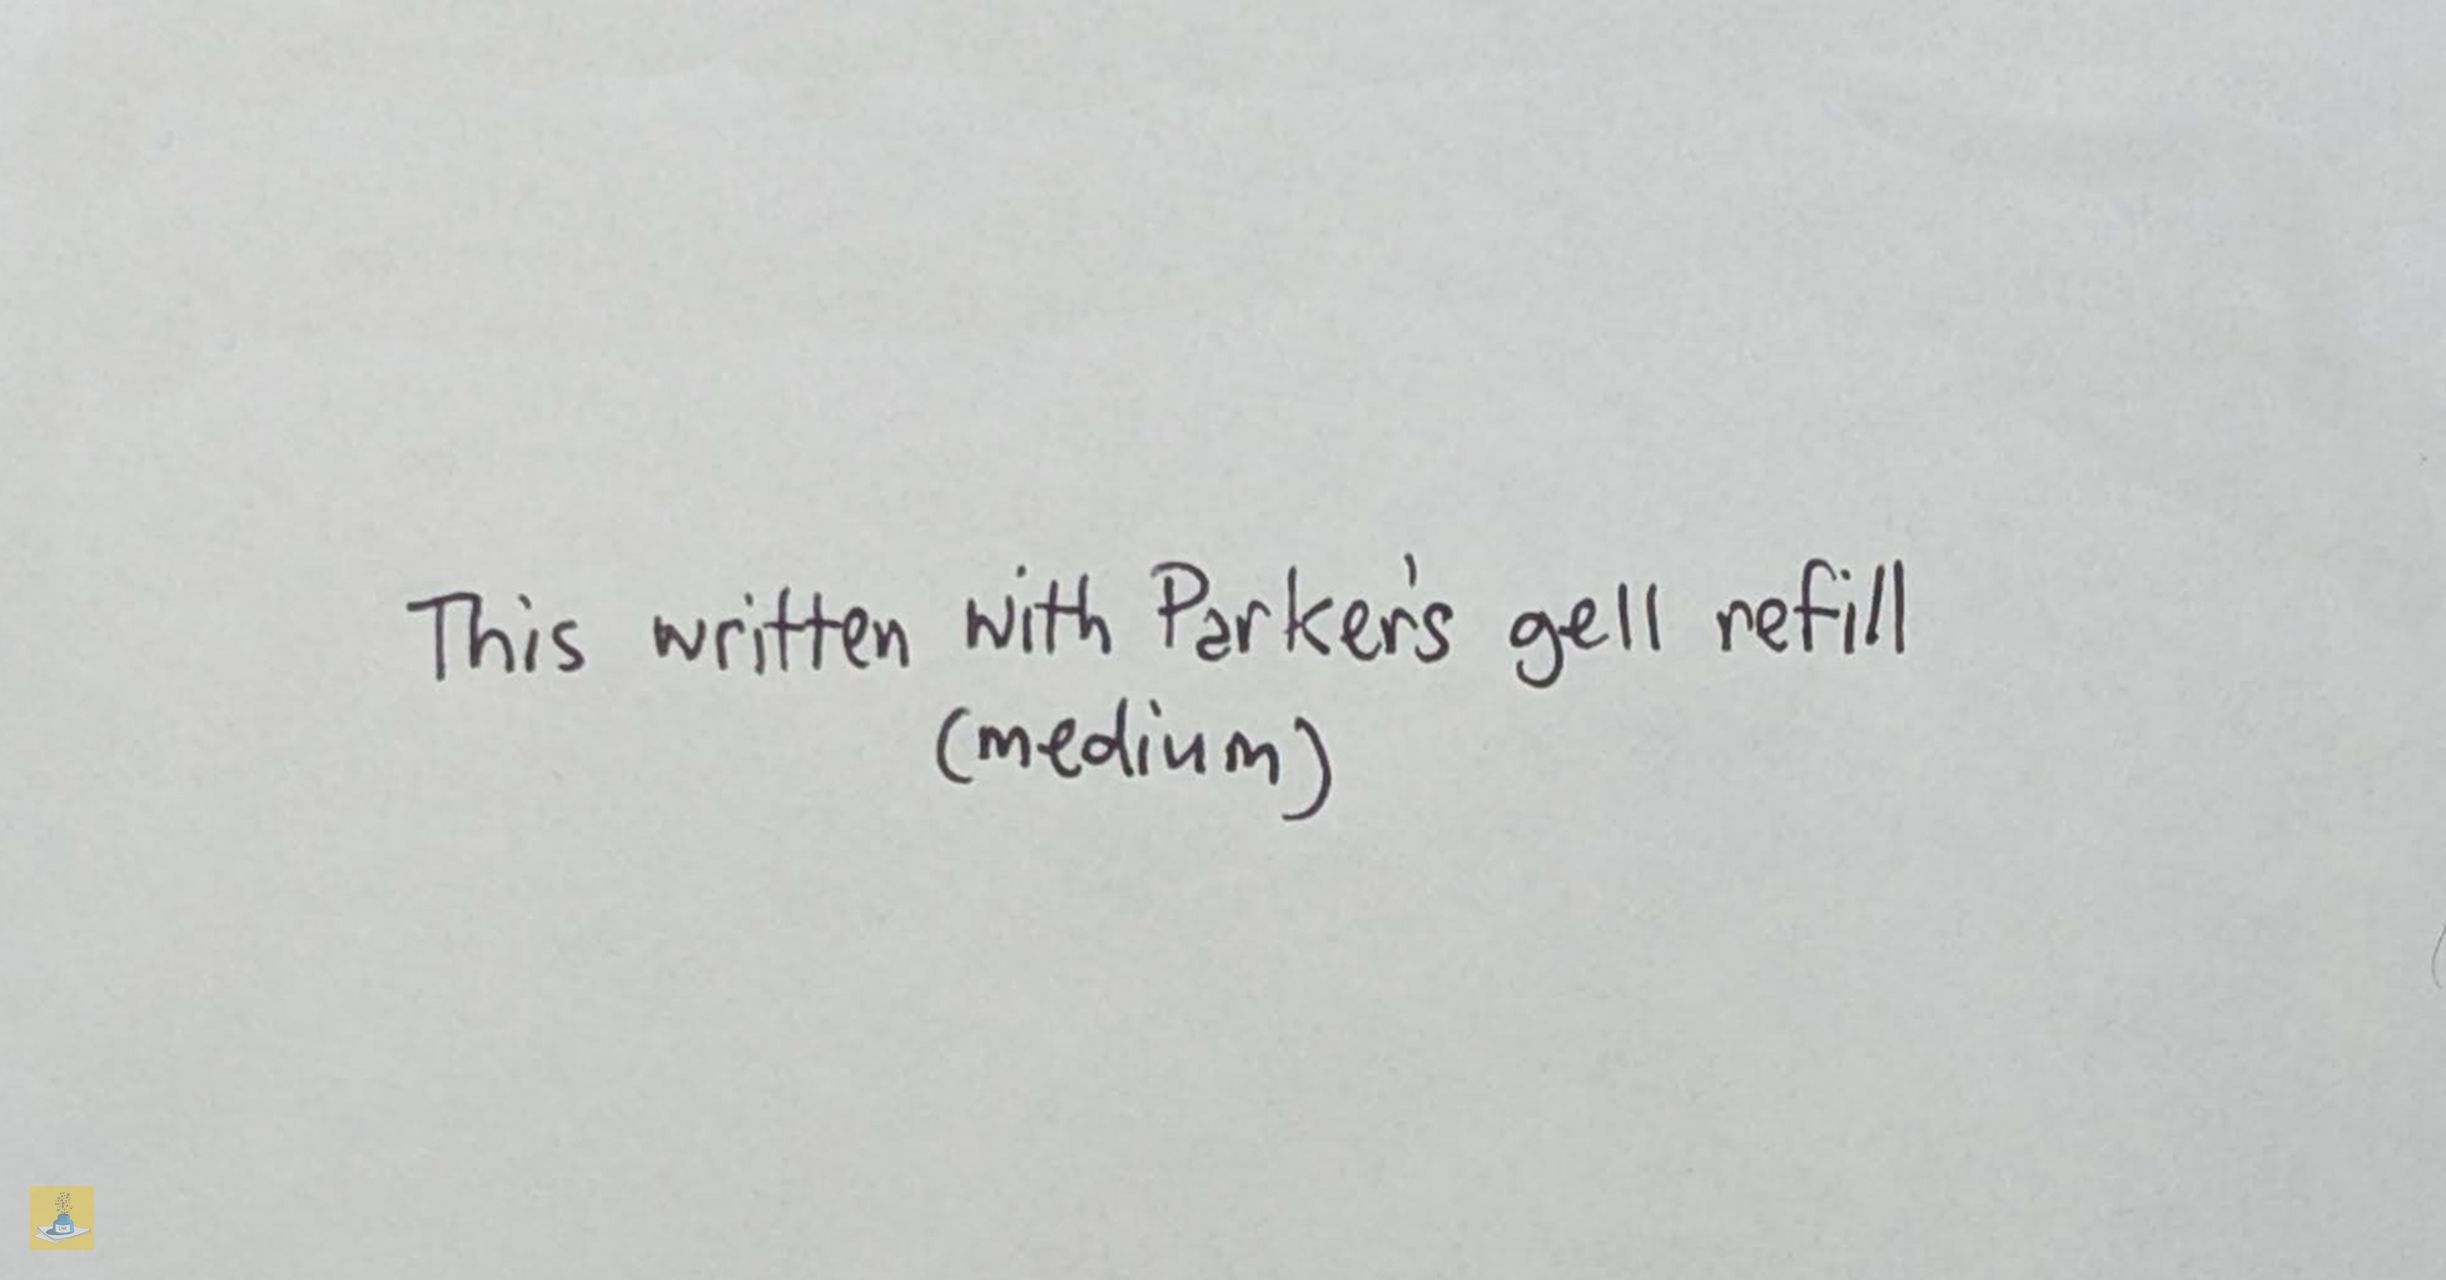 This written with Parker's gell refill
(medium)